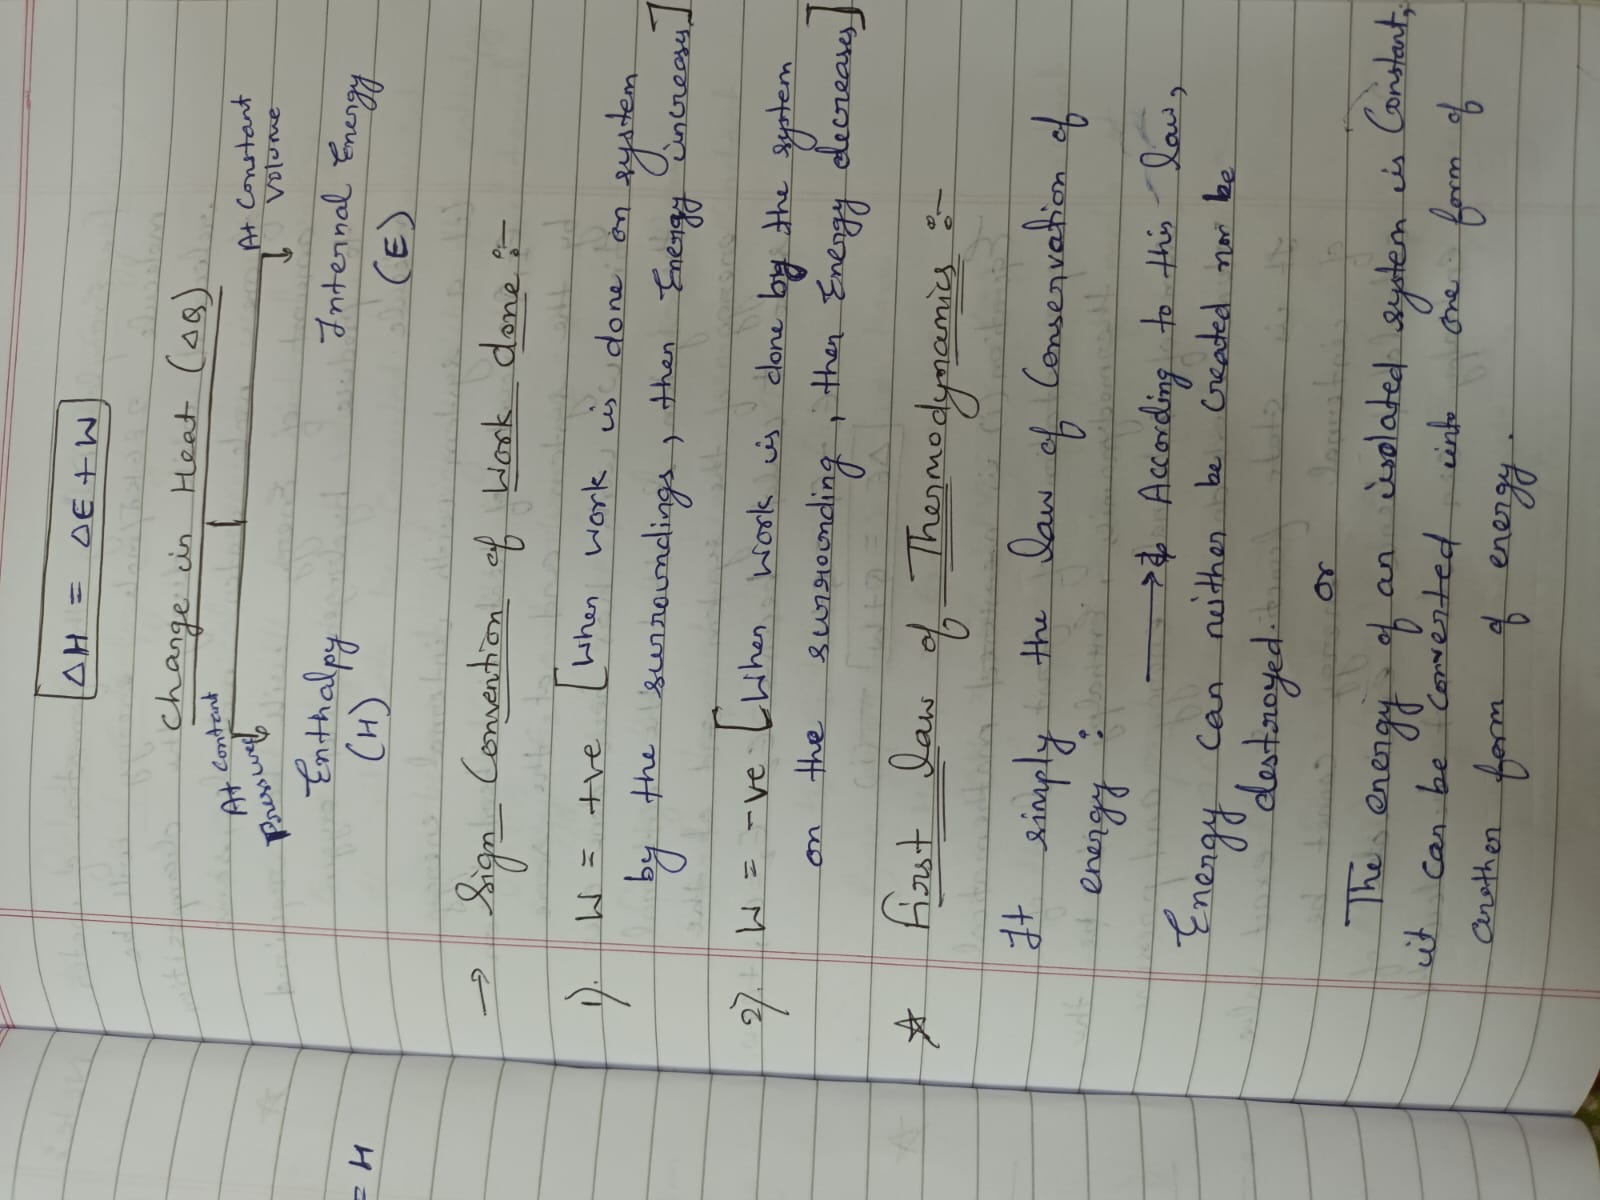 ΔH = ΔE + W
Change in Heat (ΔQ)
At contant pressure
At Constant volume
Enthalpy (H)
Internal Energy (E)
→ Sign Convention of Work done :-
1). W = +ve [When work is done on system
by the surroundings, then Energy increases]
2). W = -ve [When work is done by the system
on the surrounding, then Energy decreases]
☆ First law of Thermodynamics :-
It simply the law of Conservation of
energy :
→ According to this law,
Energy can neither be created nor be
destroyed.
or
The energy of an isolated system is Constant,
it can be converted into one form of
another form of energy.
= H